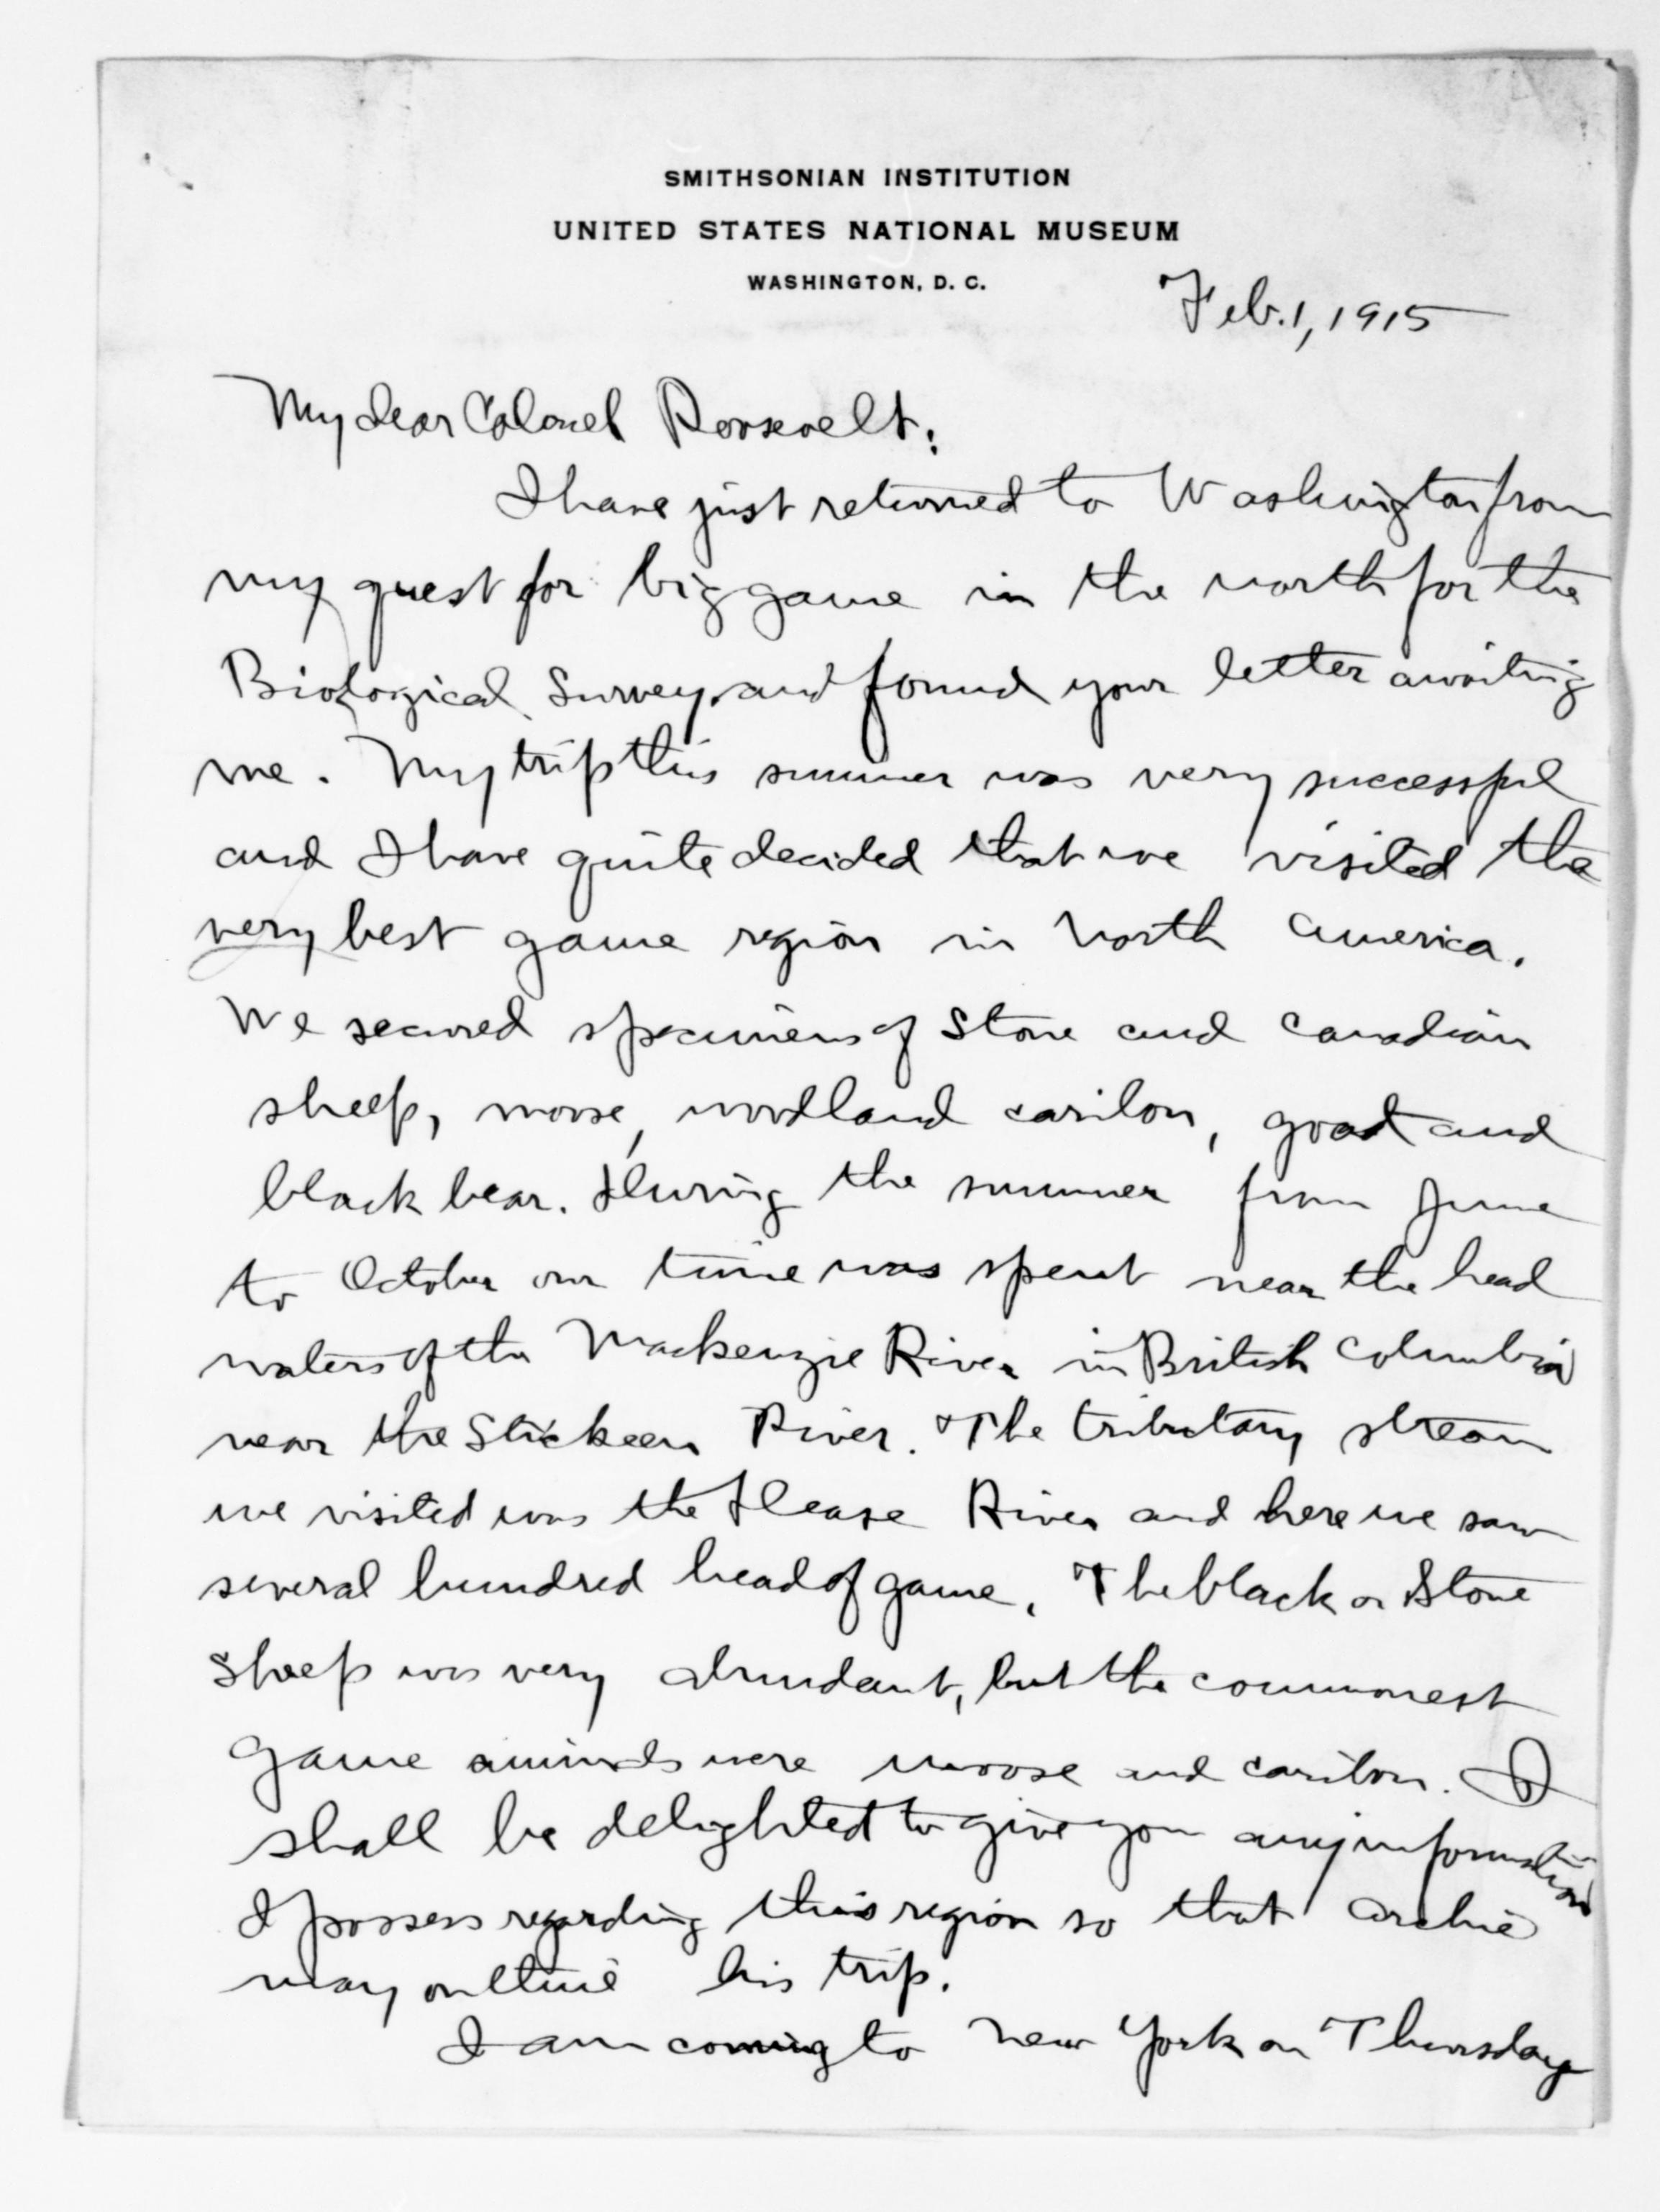 SMITHSONIAN INSTITUTION
UNITED STATES NATIONAL MUSEUM
WASHINGTON, D. C.
Feb. 1, 1915
My dear Colonel Roosevelt:
I have just returned to Washington from
my quest for big game in the north for the
Biological Survey and found your letter awaiting
me. My trip this summer was very successful
and I have quite decided that we visited the
very best game region in North America.
We secured specimens of Stone and Canadian
sheep, moose, woodland caribou, goat and
black bear. During the summer from June
to October our time was spent near the head
waters of the Mackenzie River in British Columbia
near the Stickeen River. The tributary stream
we visited was the Dease River and here we saw
several hundred head of game. The black or Stone
sheep was very abundant, but the commonest
game animals were moose and caribou. I
shall be delighted to give you any information
I possess regarding this region so that Archie
may outline his trip.
I am coming to New York on Thursday